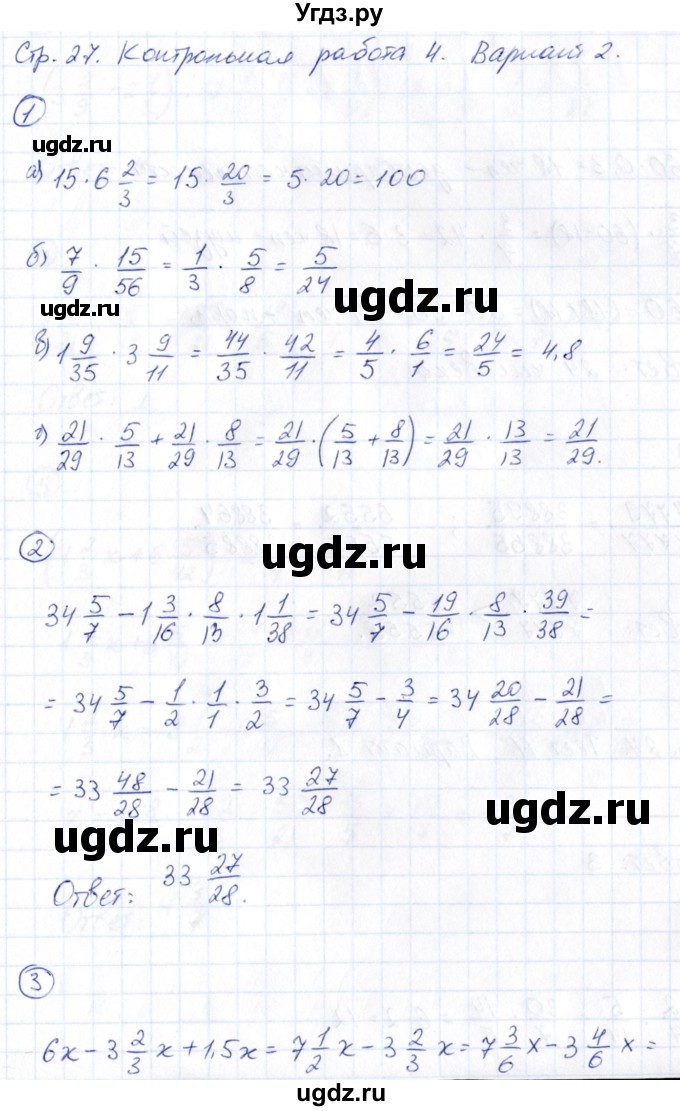 Угдз.ру
Стр. 27. Контрольная работа 4. Вариант 2.
1
ugdz.ru
а) 15 · 6 2/3 = 15 · 20/3 = 5 · 20 = 100
б) 7/9 · 15/56 = 1/3 · 5/8 = 5/24
ugdz.ru
ugdz.ru
в) 1 9/35 · 3 9/11 = 44/35 · 42/11 = 4/5 · 6/1 = 24/5 = 4,8
г) 21/29 · 5/13 + 21/29 · 8/13 = 21/29 · (5/13 + 8/13) = 21/29 · 13/13 = 21/29.
2
ugdz.ru
34 5/7 − 1 3/16 · 8/13 · 1 1/38 = 34 5/7 − 19/16 · 8/13 · 39/38 =
= 34 5/7 − 1/2 · 1/1 · 3/2 = 34 5/7 − 3/4 = 34 20/28 − 21/28 =
= 33 48/28 − 21/28 = 33 27/28
ugdz.ru
ugdz.ru
Ответ: 33 27/28.
3
6x − 3 2/3 x + 1,5x = 7 1/2 x − 3 2/3 x = 7 3/6 x − 3 4/6 x =
ugdz.ru